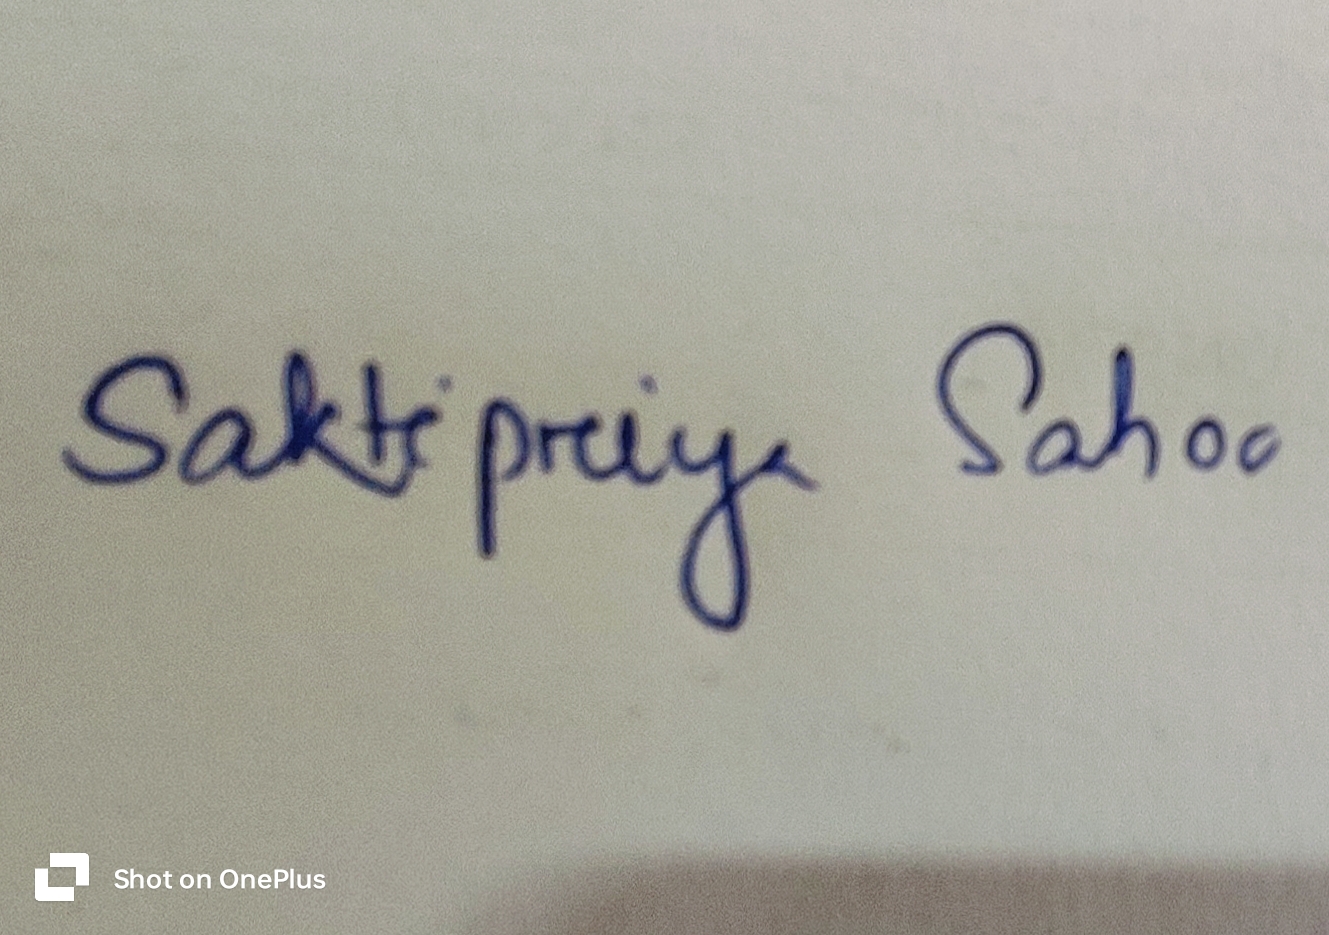 Saktipriya Sahoo
Shot on OnePlus